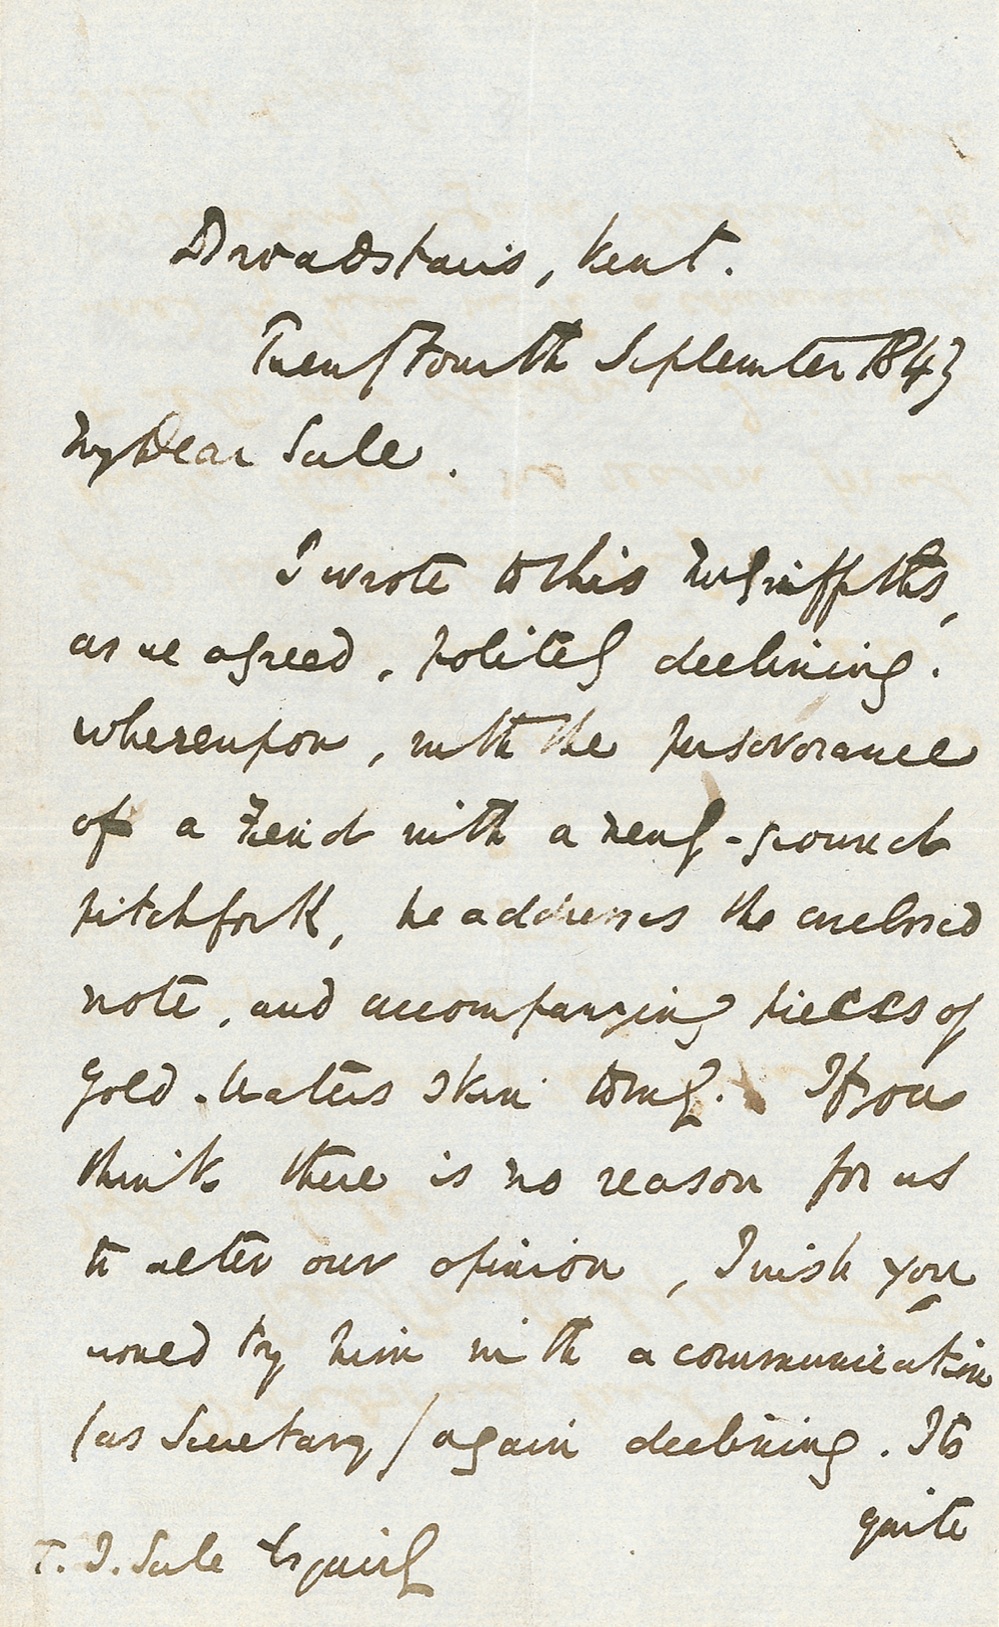 Broadstairs, Kent.
Twenty Fourth September 1843
My Dear Sale.
I wrote to this Mr Griffiths,
as we agreed, politely declining.
whereupon, with the perseverance
of a Fiend with a twenty-pound
pitchfork, he addresses the enclosed
note, and accompanying pieces of
gold-beaters skin to me. If you
think there is no reason for us
to alter our opinion, I wish you
would try him with a communication
(as Secretary) again declining. Its
quite
T. J. Sale Esquire